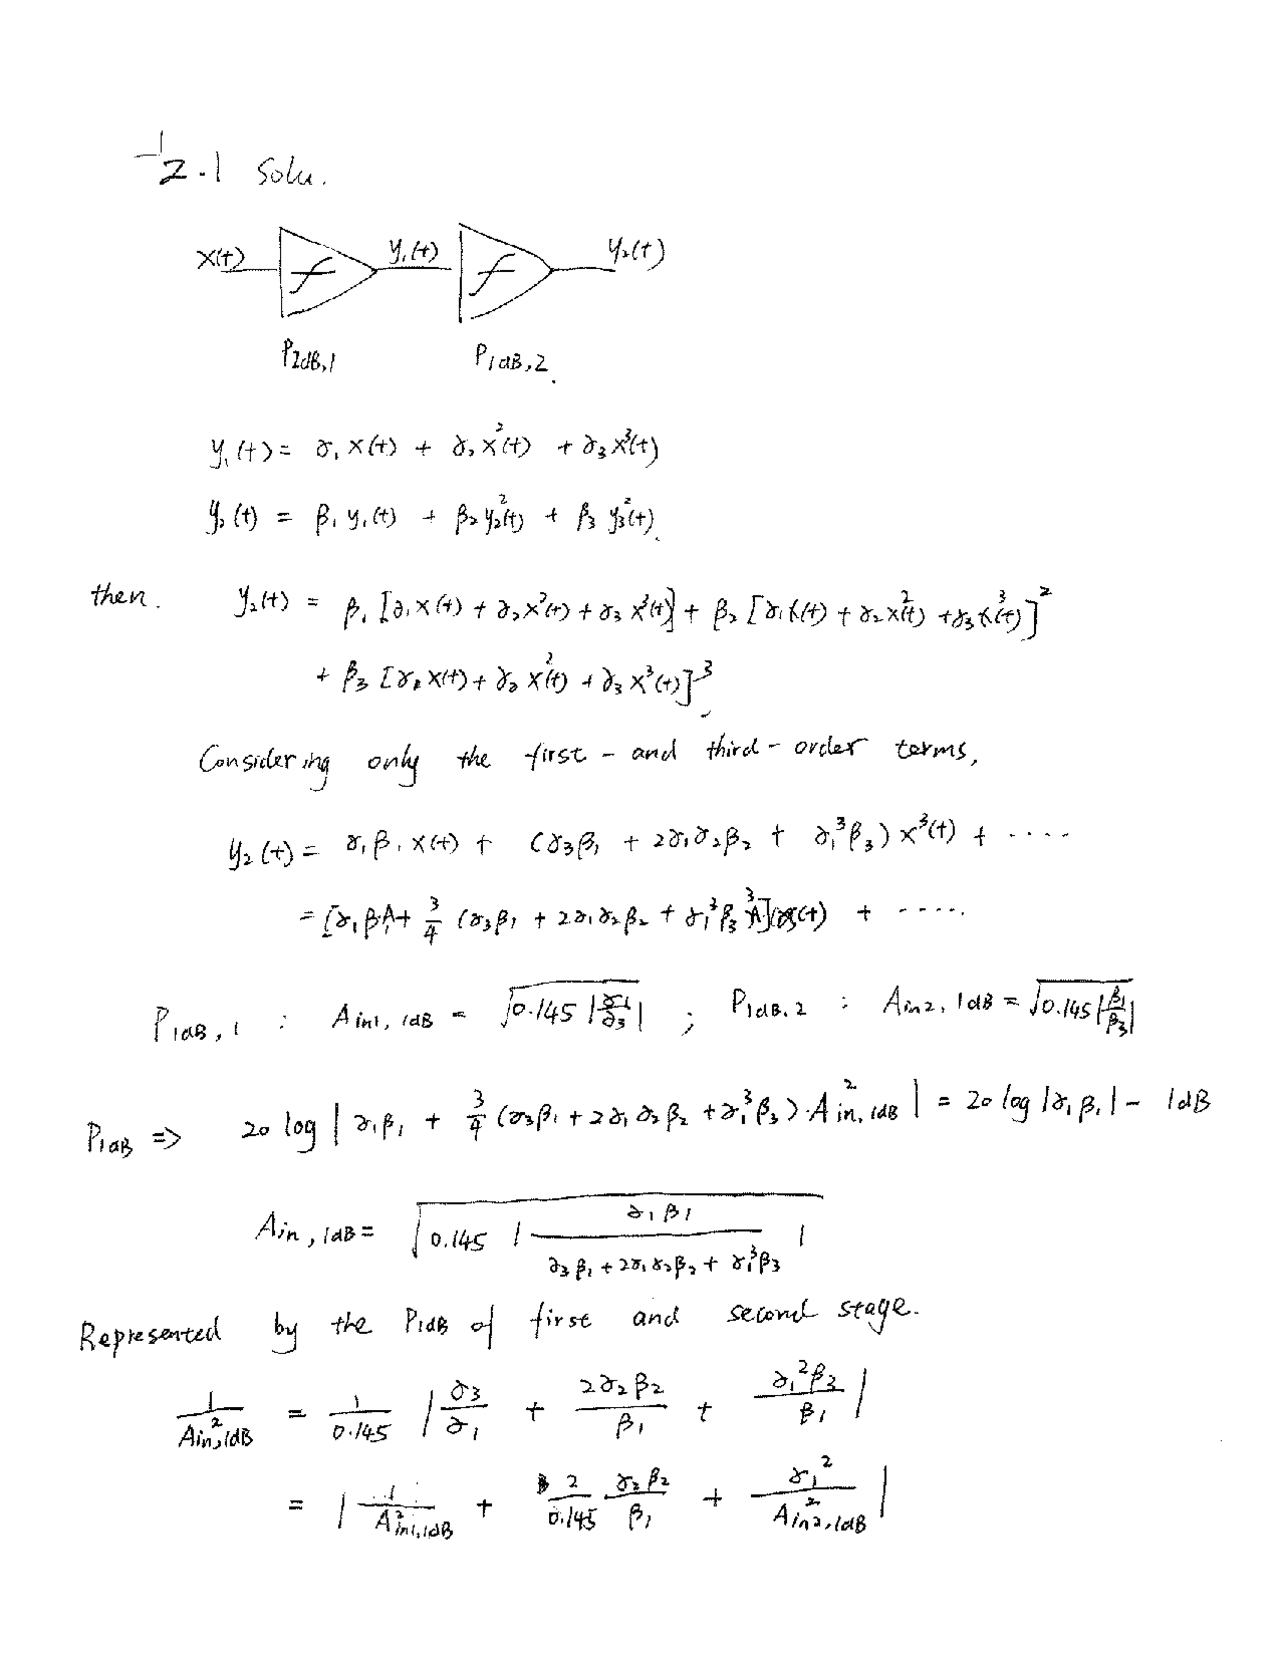 2.1 Solu.
x(t) y₁(t) y₂(t)
P1dB,1 P1dB,2
y₁(t) = γ₁ x(t) + γ₂ x²(t) + γ₃ x³(t)
y₂(t) = β₁ y₁(t) + β₂ y₂²(t) + β₃ y₃²(t)
then. y₂(t) = β₁ [γ₁ x(t) + γ₂ x²(t) + γ₃ x³(t)] + β₂ [γ₁ x(t) + γ₂ x²(t) + γ₃ x³(t)]²
+ β₃ [γ₁ x(t) + γ₂ x²(t) + γ₃ x³(t)]³
Considering only the first - and third - order terms,
y₂(t) = γ₁β₁ x(t) + (γ₃β₁ + 2γ₁γ₂β₂ + γ₁³β₃) x³(t) + ....
= [γ₁β₁A + 3/4 (γ₃β₁ + 2γ₁γ₂β₂ + γ₁³β₃ A³] (t) + .....
P1dB,1 : Ain1,1dB = √(0.145 |γ₁/γ₃|) ; P1dB,2 : Ain2,1dB = √(0.145 |β₁/β₃|)
P1dB ⇒ 20 log | γ₁β₁ + 3/4 (γ₃β₁ + 2γ₁γ₂β₂ + γ₁³β₃) · A²in,1dB | = 20 log |γ₁β₁| - 1dB
Ain,1dB = √(0.145 | γ₁β₁ / (γ₃β₁ + 2γ₁γ₂β₂ + γ₁³β₃) |)
Represented by the P1dB of first and second stage.
1/A²in,1dB = 1/0.145 | γ₃/γ₁ + 2γ₂β₂/β₁ + γ₁²β₃/β₁ |
= | 1/A²in1,1dB + 2/0.145 γ₂β₂/β₁ + γ₁²/A²in2,1dB |